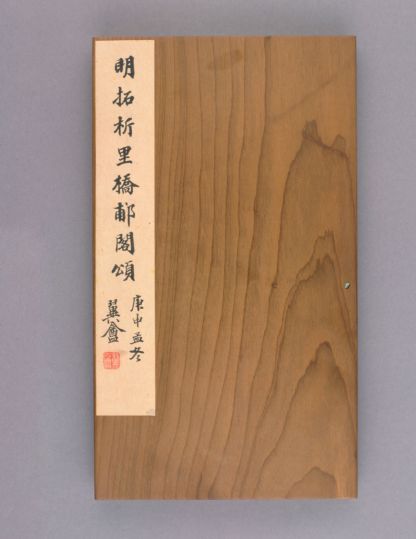 明拓析里橋郙閣頌
庚申孟冬
翼盦